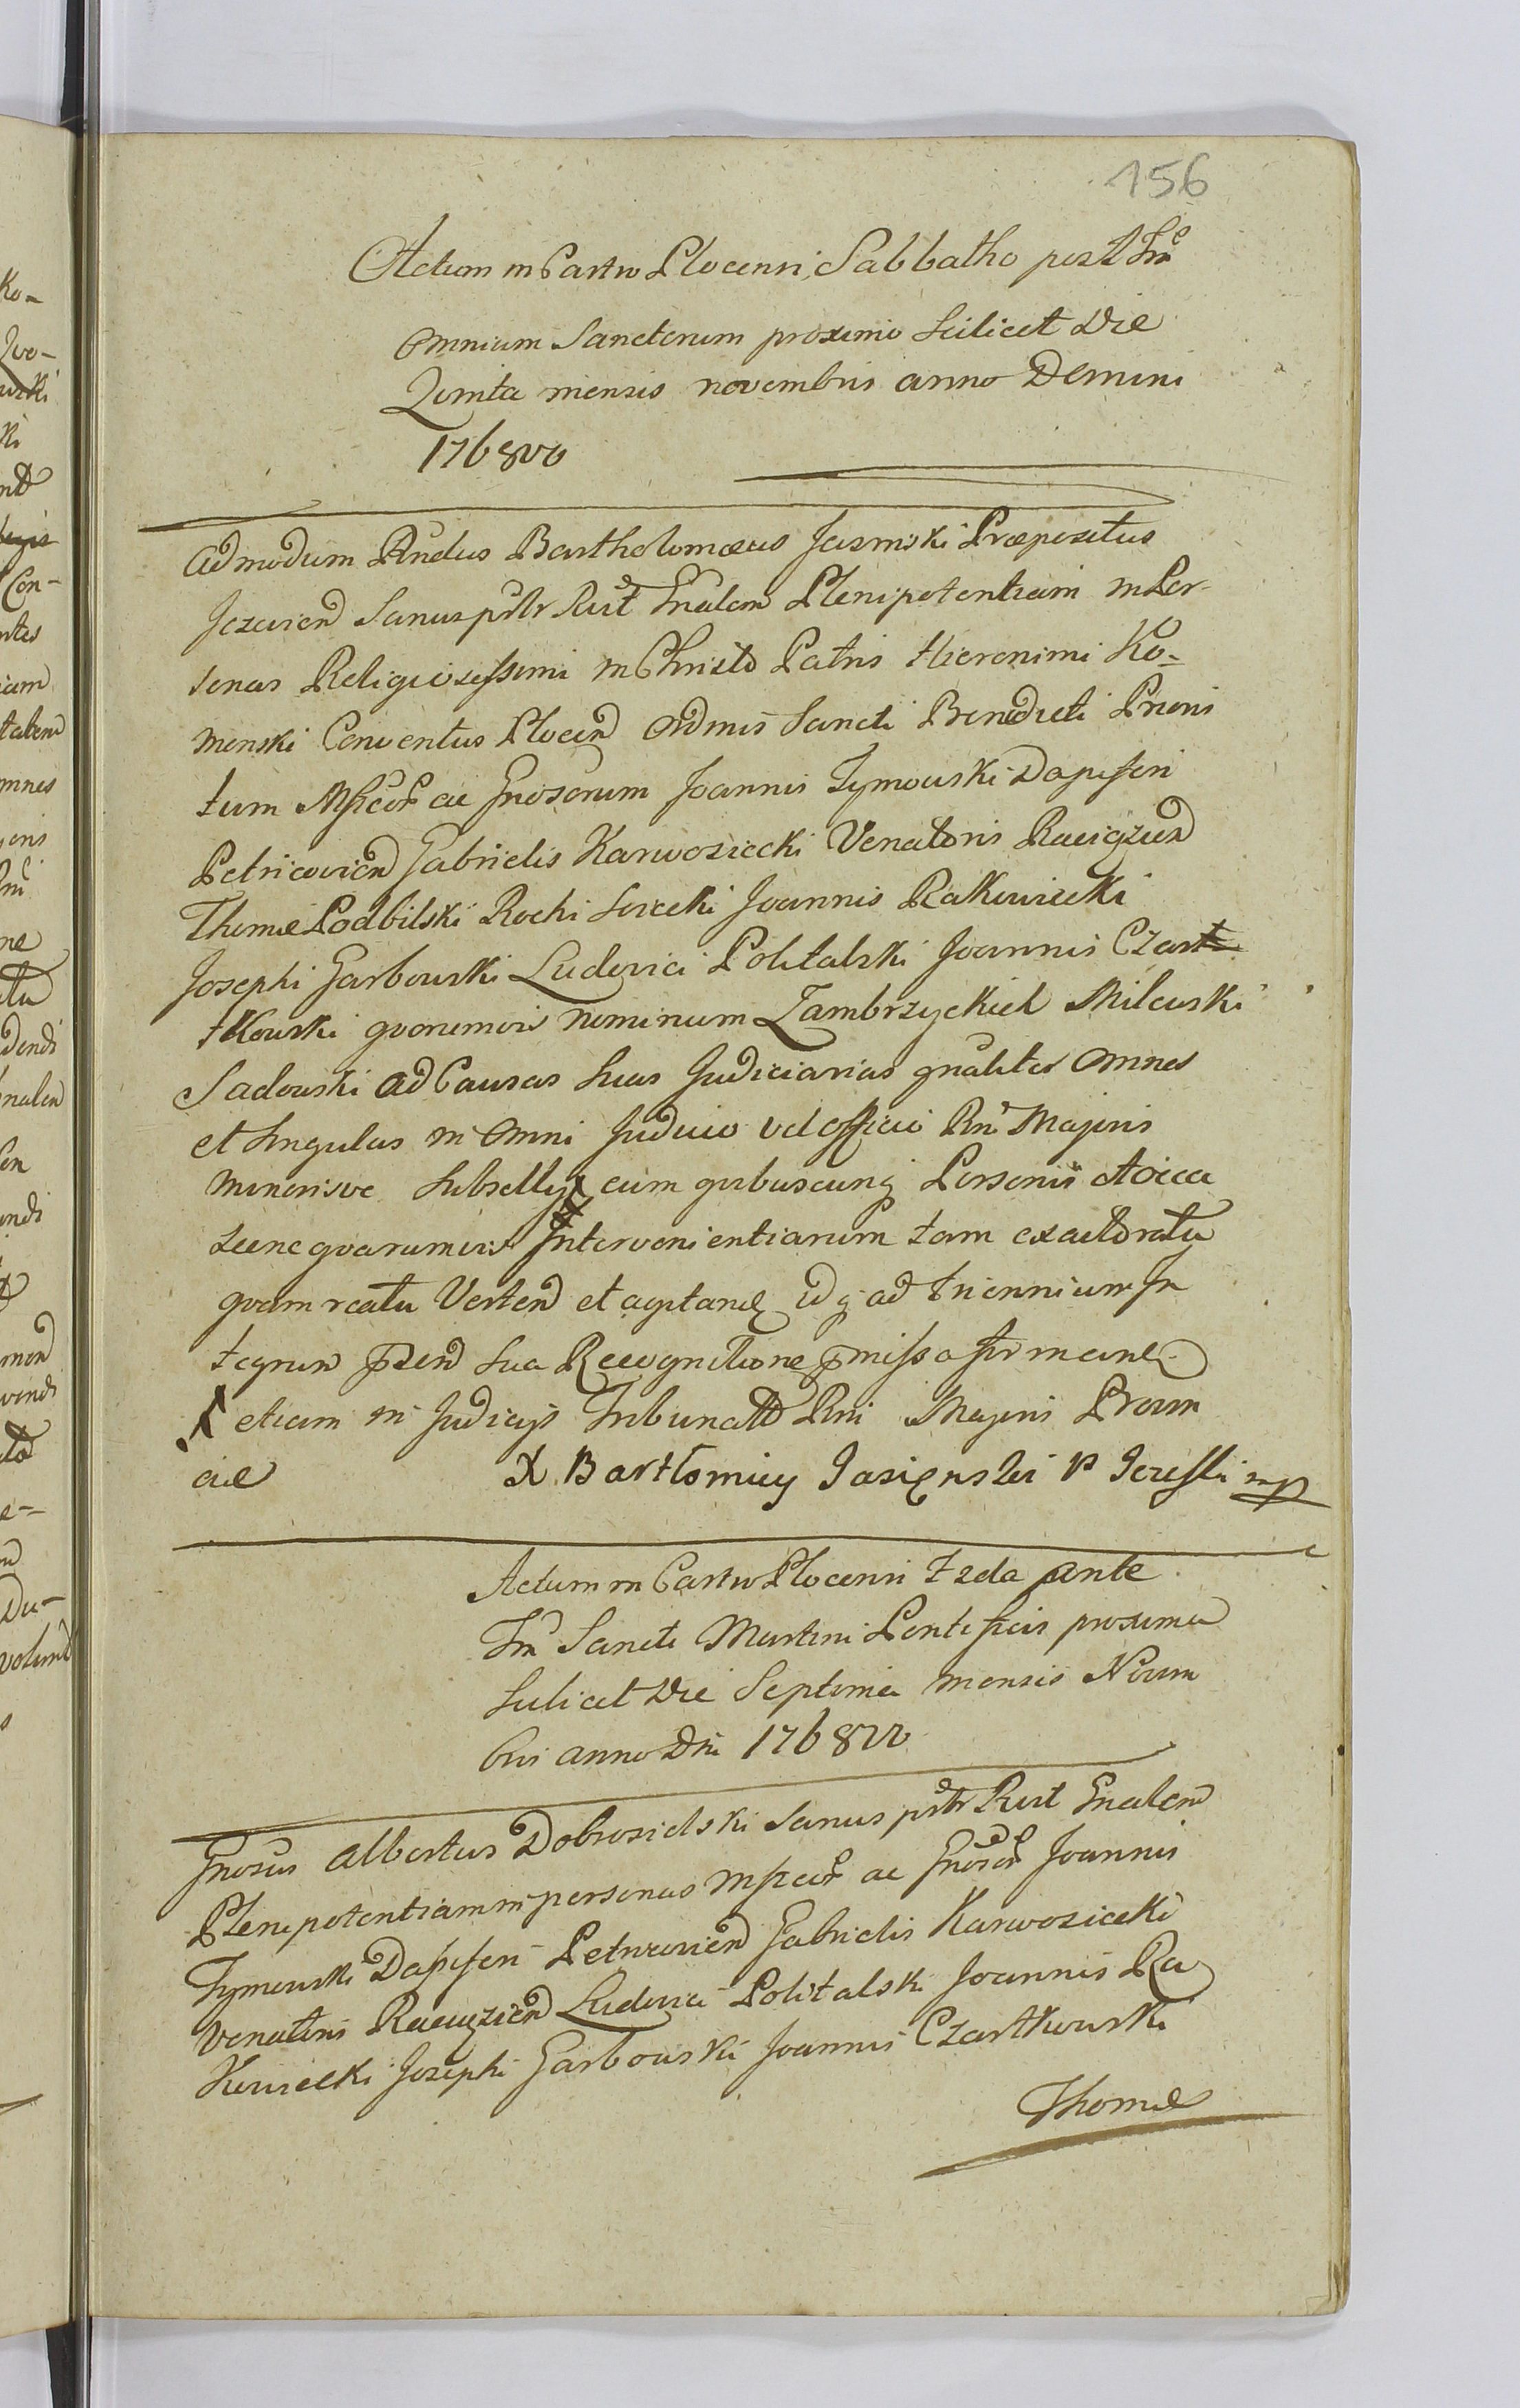 156
Actum in Castro Plocensi Sabbatho post Ftũ
Omnium Sanctorum proximo scilicet Die
Quinta mensis novembris anno Domini
1768vo
Admodum Rndus Bartholomæus Jasinski Præpositus
Jezevien Sanus pntr Rest Gnalem Plenipotentiam in Per-
sonas Religiosissimi in Christo Patris Hieronimi Ko-
menski Conventus Plocen Ordinis Sancti Benedicti Prioris
tum Mficor ac Gnosorum Joannis Tymowski Dapiferi
Petricovien Gabrielis Karwosiecki Venatoris Raciązen
Thomæ Podbilski Rochi Joannis Rakowiecki
Josephi Garbowski Ludovici Politalski Joannis Czart
tkowski quorumvis nominum Zambrzyckich Milewski
Sadowski ad Causas suas Judiciarias gnaliter omnes
et singulas in omni Judicio vel officio Rni Majoris
minorisve Subsellij cum quibuscunq Personis
quarumvis Intervenientiarum tam ex actoratu
quam reatu Verten et id q ad Triennium In
tegrum sua Recognitione pmissa
etiam in Judicijs Tribunalit Rni Majoris Provin
ciæ X. Bartłomiey Jasięnski P Jezeski mp
Actum in Castro Plocensi Feria 2da ante
Ftũ Sancti Martini Pontificis proxima
scilicet Die Septima mensis Novem
bris anno Dni 1768vo
Gnosus Albertus Dobrosielski Sanus pntr Rest Gnalem
Plenipotentiam in personas Mficor ac Gnosor Joannis
Tymowski Dapiferi Petricovien Gabrielis Karwosiecki
Venatoris Raciązien Ludovici Politalski Joannis Ra
kowiecki Josephi Garbowski Joannis Czartkowski
Thomæ